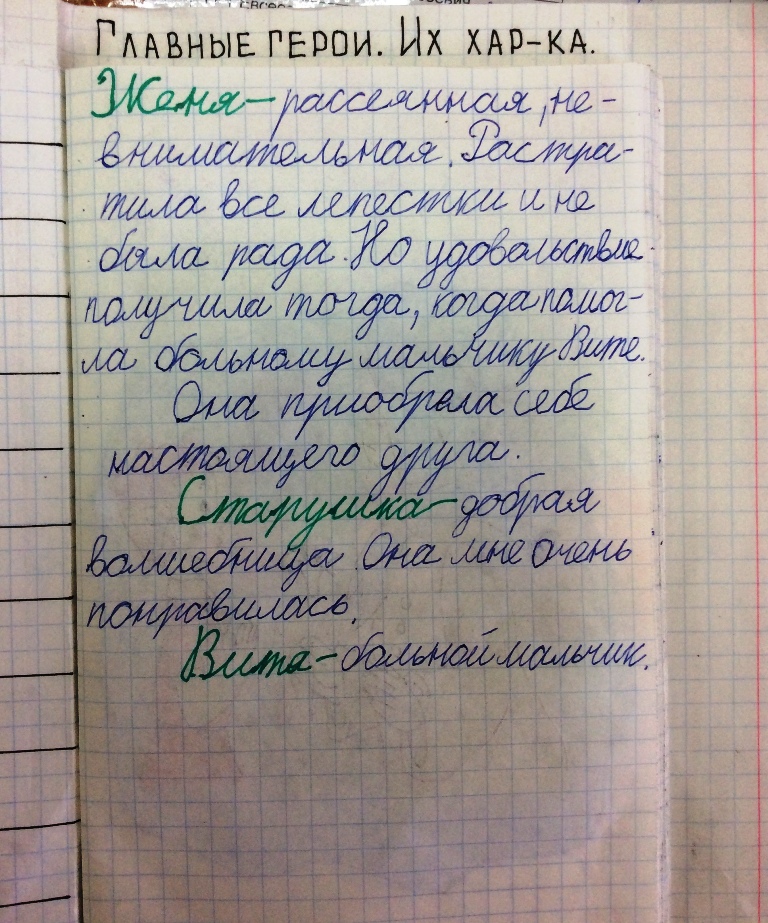 Главные герои. Их хар-ка.
Женя – рассеянная, не-
внимательная. Растра-
тила все лепестки и не
была рада. Но удовольствие
получила тогда, когда помог-
ла больному мальчику Вите.
Она приобрела себе
настоящего друга.
Старушка – добрая
волшебница. Она мне очень
понравилась.
Витя – больной мальчик.